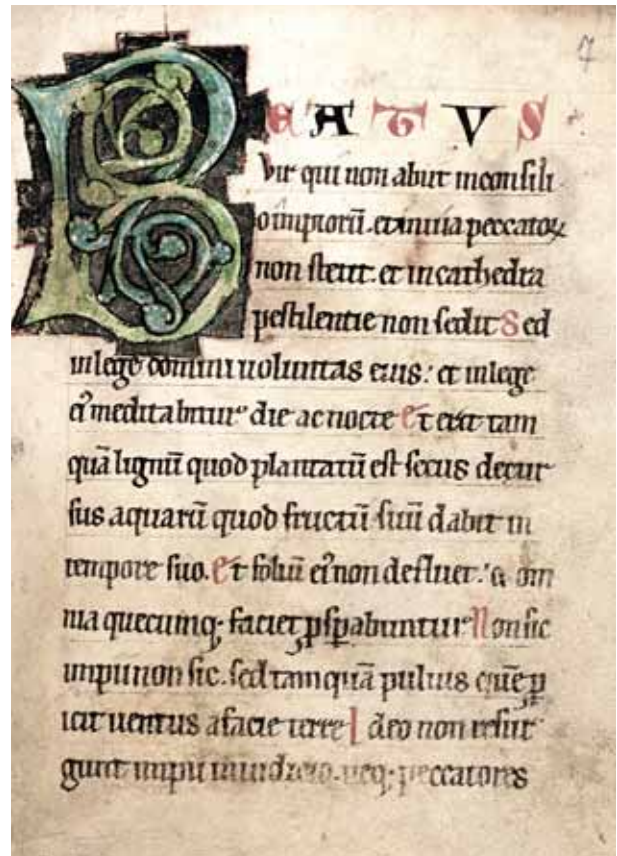 7
BEATUS
vir qui non abut inconsili
o impiorū. et in uia peccatoꝝ
non stetit. et in cathedra
pestilentie non sedit Sed
in lege domini uoluntas eius: et in lege
eꝰ meditabitur die ac nocte Et erit tam
quā lignū quod plantatū est secus decur
sus aquarū quod fructū suū dabit in
tempore suo. Et foliū eꝰ non defluet: & om
nia quecumq; faciet ꝓsꝑabuntur Non sic
impii non sic. sed tamquā puluis quē ꝓ
icit uentus a facie terre Ideo non resur
gunt impii in iudicio. neq; peccatores